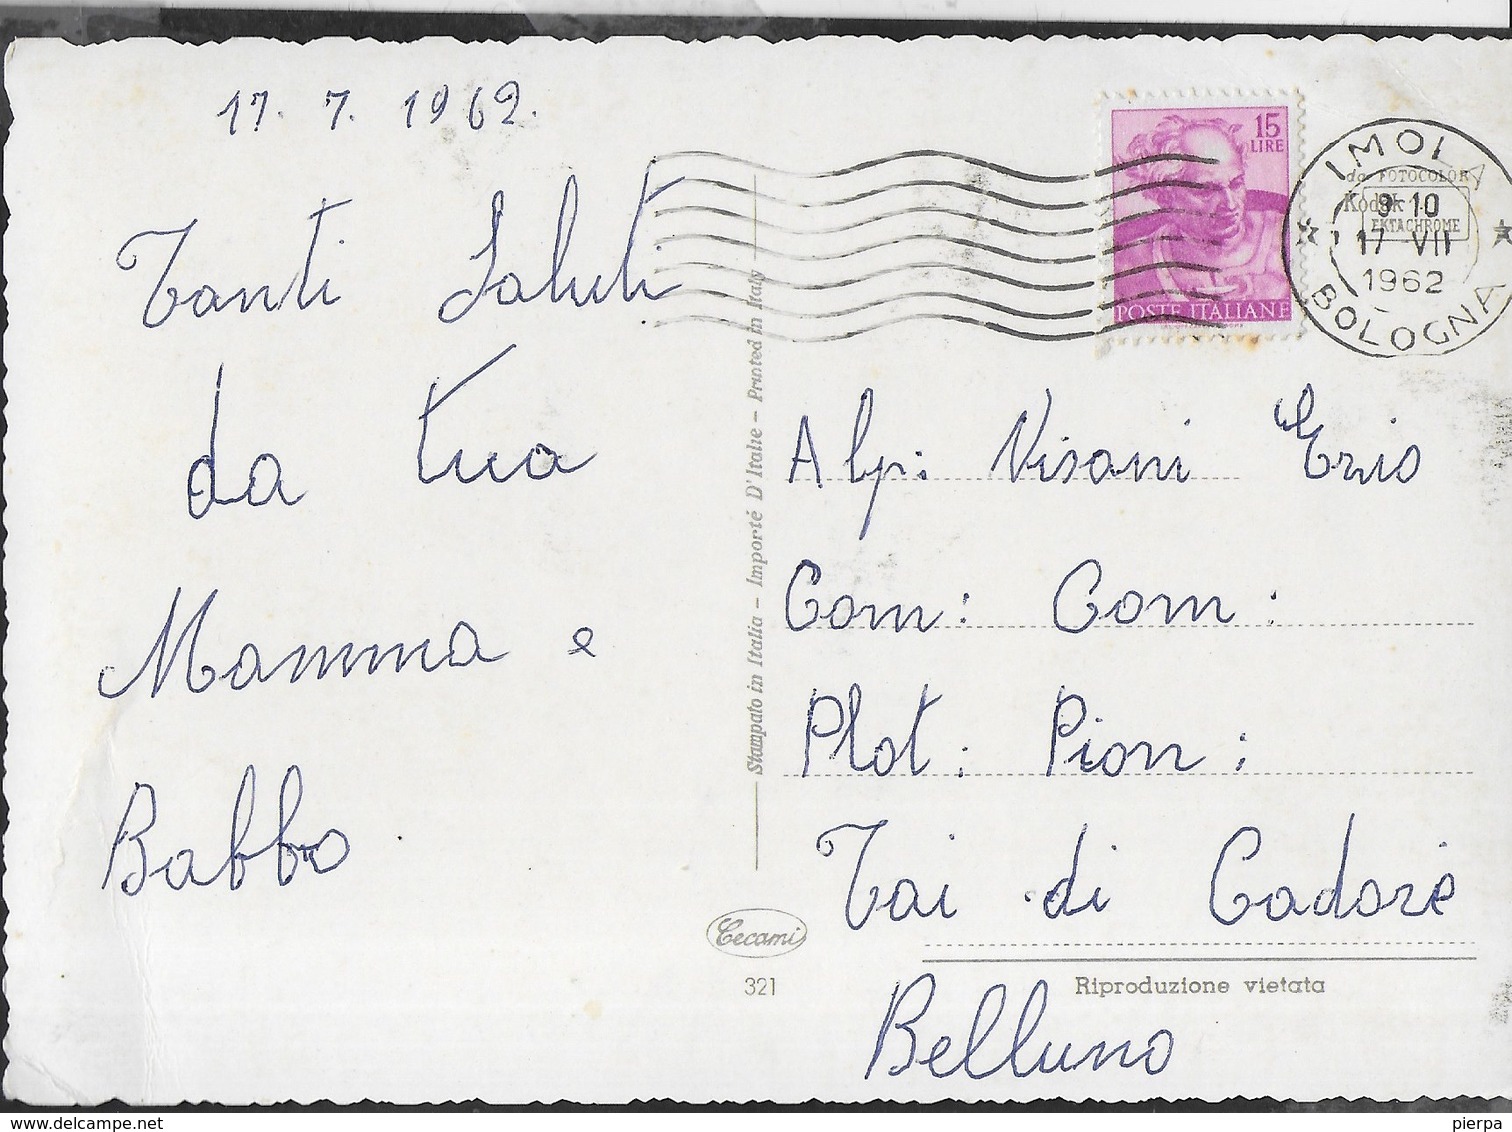 17. 7. 1962.
Tanti Saluti
da tua
Mamma e
Babbo.
Stampato in Italia – Importé D'Italie – Printed in Italy
Cecami
321
15
LIRE
POSTE ITALIANE
IMOLA
da FOTOCOLOR
Kodak
EKTACHROME
17 VII
1962
BOLOGNA
Alp: Visani Ezio
Com: Com:
Plot: Pion:
Tai di Cadore
Riproduzione vietata
Belluno
delcampe.net
pierpa